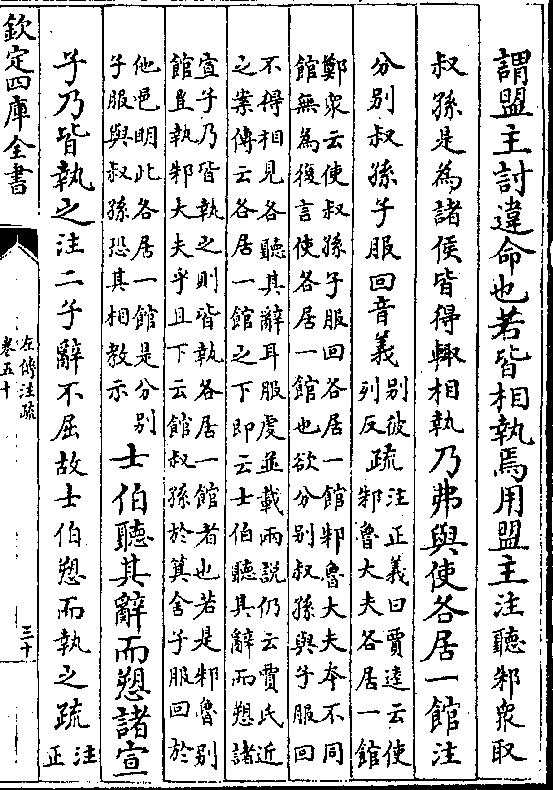 謂盟主討違命也若皆相執焉用盟主注聽邾衆取
叔孫是為諸侯皆得輒相執乃弗與使各居一館注
分别叔孫子服回音義别彼列反疏注正義曰賈逵云使邾魯大夫各居一館
鄭衆云使叔孫子服回各居一館邾魯大夫本不同館無為復言使各居一館也欲分别叔孫與子服回
不得相見各聽其辭耳服虔並載兩說仍云賈氏近之案傳云各居一館之下即云士伯聽其辭而愬諸
宣子乃皆執之則皆執各居一館者也若是邾魯别館豈執邾大夫乎且下云館叔孫於箕舍子服回於
他邑明此各居一館是分别子服與叔孫恐其相教示士伯聽其辭而愬諸宣
子乃皆執之注二子辭不屈故士伯愬而執之疏注正
欽定四庫全書
左傳注疏
卷五十
三十